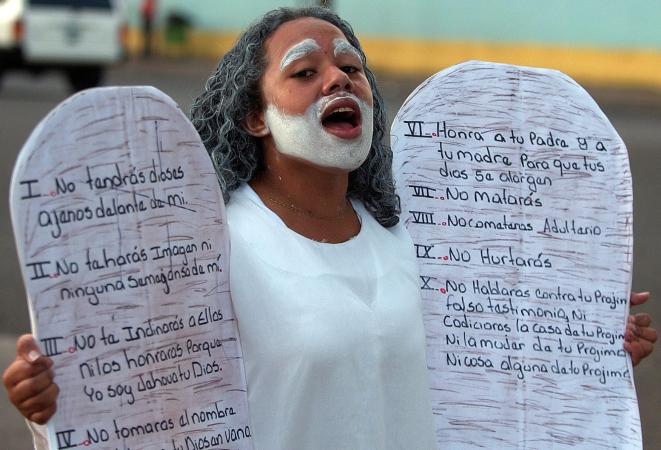 I...No tandrás dioses
ajanos dalanta da mi.
II..No taharás Imagan ni
ninguna Samaganso da mí.
III..No ta Indinarás a Ellos
ni los honrarás Porqua
Yo soy Jahova tu Dios.
IV...No tomaras al nombra
tu Dios an vana
VI...Honra a tu Padre y a
tu madre Para que tus
dios se alargan
VII...No matarás
VIII...No comataras Adultario
IX...No Hurtarás
X...No Hablaras contra tu Projim
falso testimonio, Ni
Codiciaras la casa da tu Projim
Ni la mujar da tu Projimo
Ni cosa alguna da tu Projimo